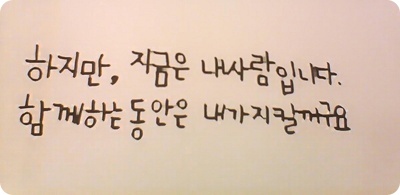 하지만, 지굼은 내사람입니다.
함께하는동안은 내가지킬꺼구요